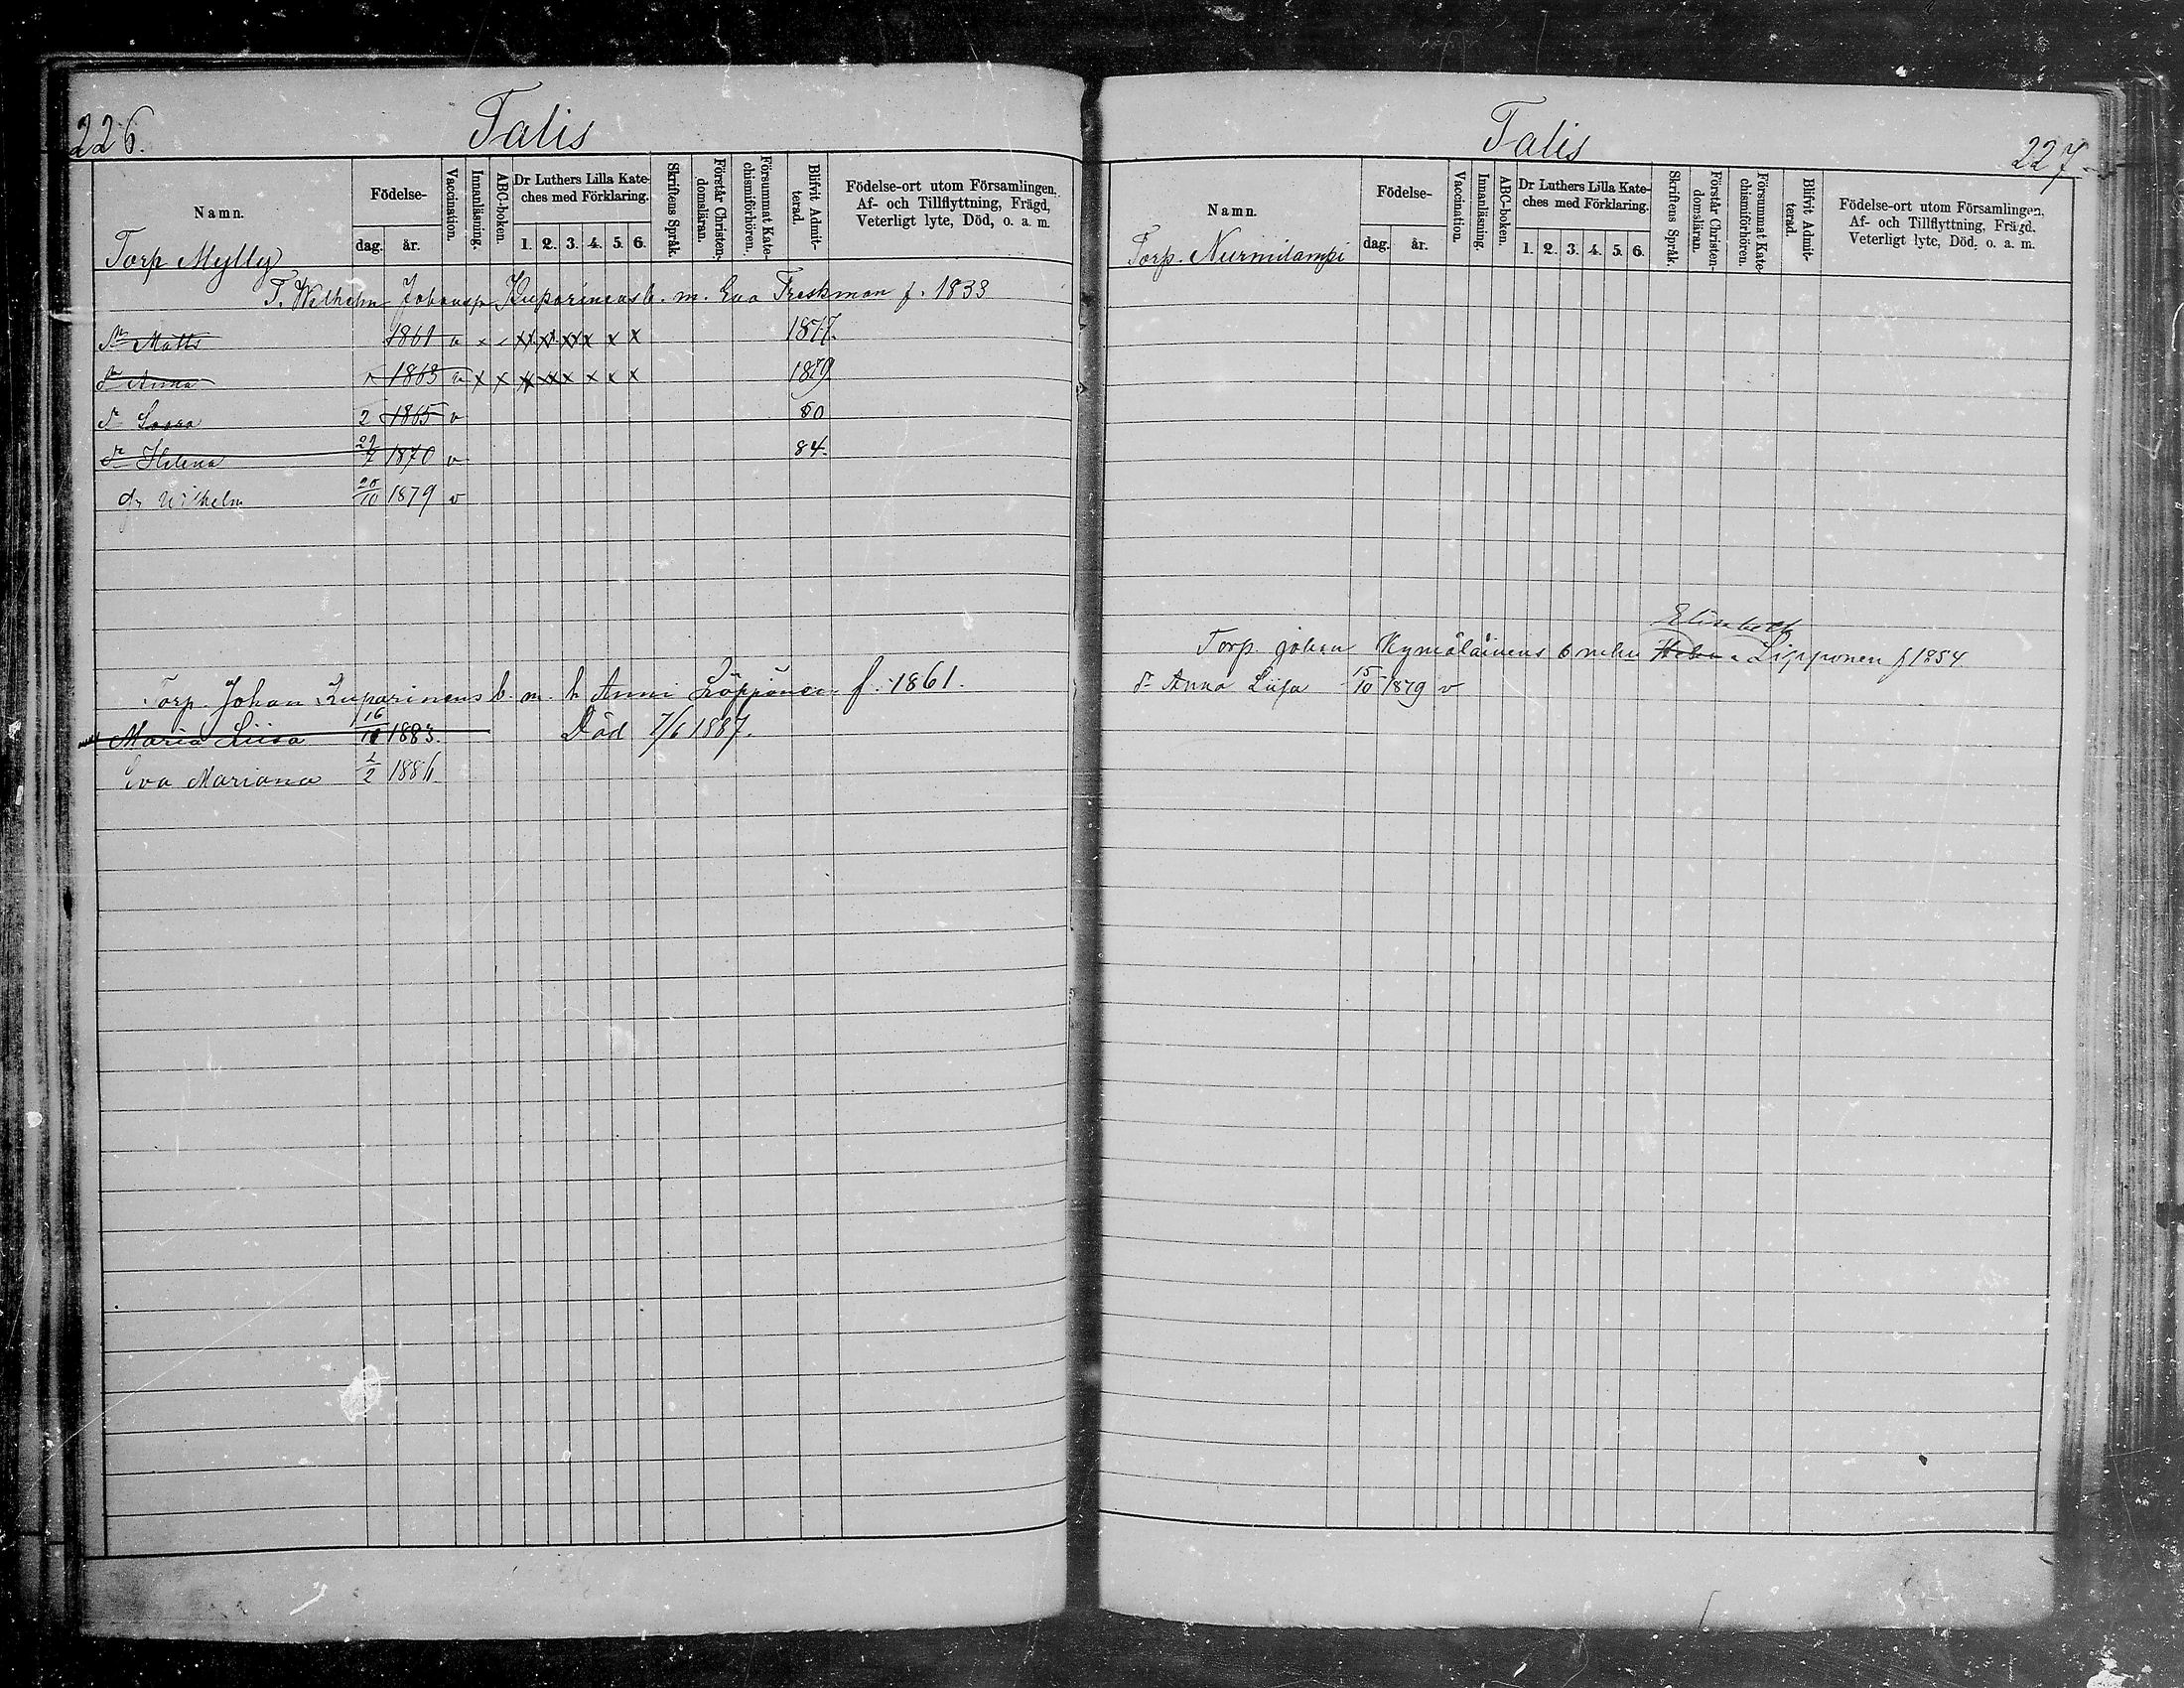 226.
Talis
Namn.
Födelse-
dag. år.
Vaccination.
Innanläsning.
ABC-boken.
Dr Luthers Lilla Kate-
ches med Förklaring.
1. 2. 3. 4. 5. 6.
Skriftens Språk.
Förstår Christen-
domsläran.
Försummat Kate-
chismiförhören.
Blifvit Admit-
terad.
Födelse-ort utom Församlingen,
Af- och Tillflyttning, Frägd,
Veterligt lyte, Död, o. a. m.
Torp Mylly
T. Wilhelm Johansp Kuparinens b. m. Eva Freskman f. 1833
Matts 1861 v x x x x x x x x 1877.
Anna 1863 v x x x x x x x x 1879
Loosa 2 1865 v 80
Helena 1870 v 84.
Wilhelm 20/10 1879 v
Torp. Johan Kuparinens b. m. h Anni f. 1861.
Maria Liisa 16/10 1883. Död 7/6 1887.
Eva Mariana 2/2 1886.
Talis
227.
Namn.
Födelse-
dag. år.
Vaccination.
Innanläsning.
ABC-boken.
Dr Luthers Lilla Kate-
ches med Förklaring.
1. 2. 3. 4. 5. 6.
Skriftens Språk.
Förstår Christen-
domsläran.
Försummat Kate-
chismiförhören.
Blifvit Admit-
terad.
Födelse-ort utom Församlingen,
Af- och Tillflyttning, Frägd,
Veterligt lyte, Död, o. a. m.
Torp. Nurmilampi
Elisabeth
Torp. johan Kymäläinens b Helena Lipponen f 1854
Anna Liisa 15/10 1879 v